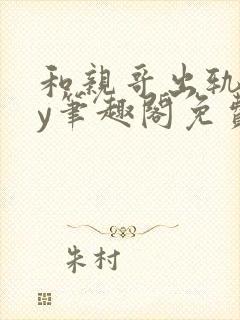 和親哥出轨
y筆趣閣免費
朱村